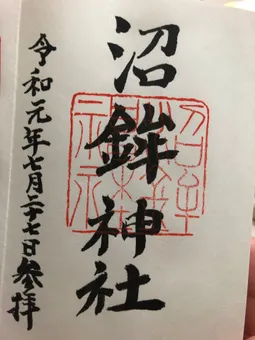 沼鉾神社
令和元年七月二十七日参拝